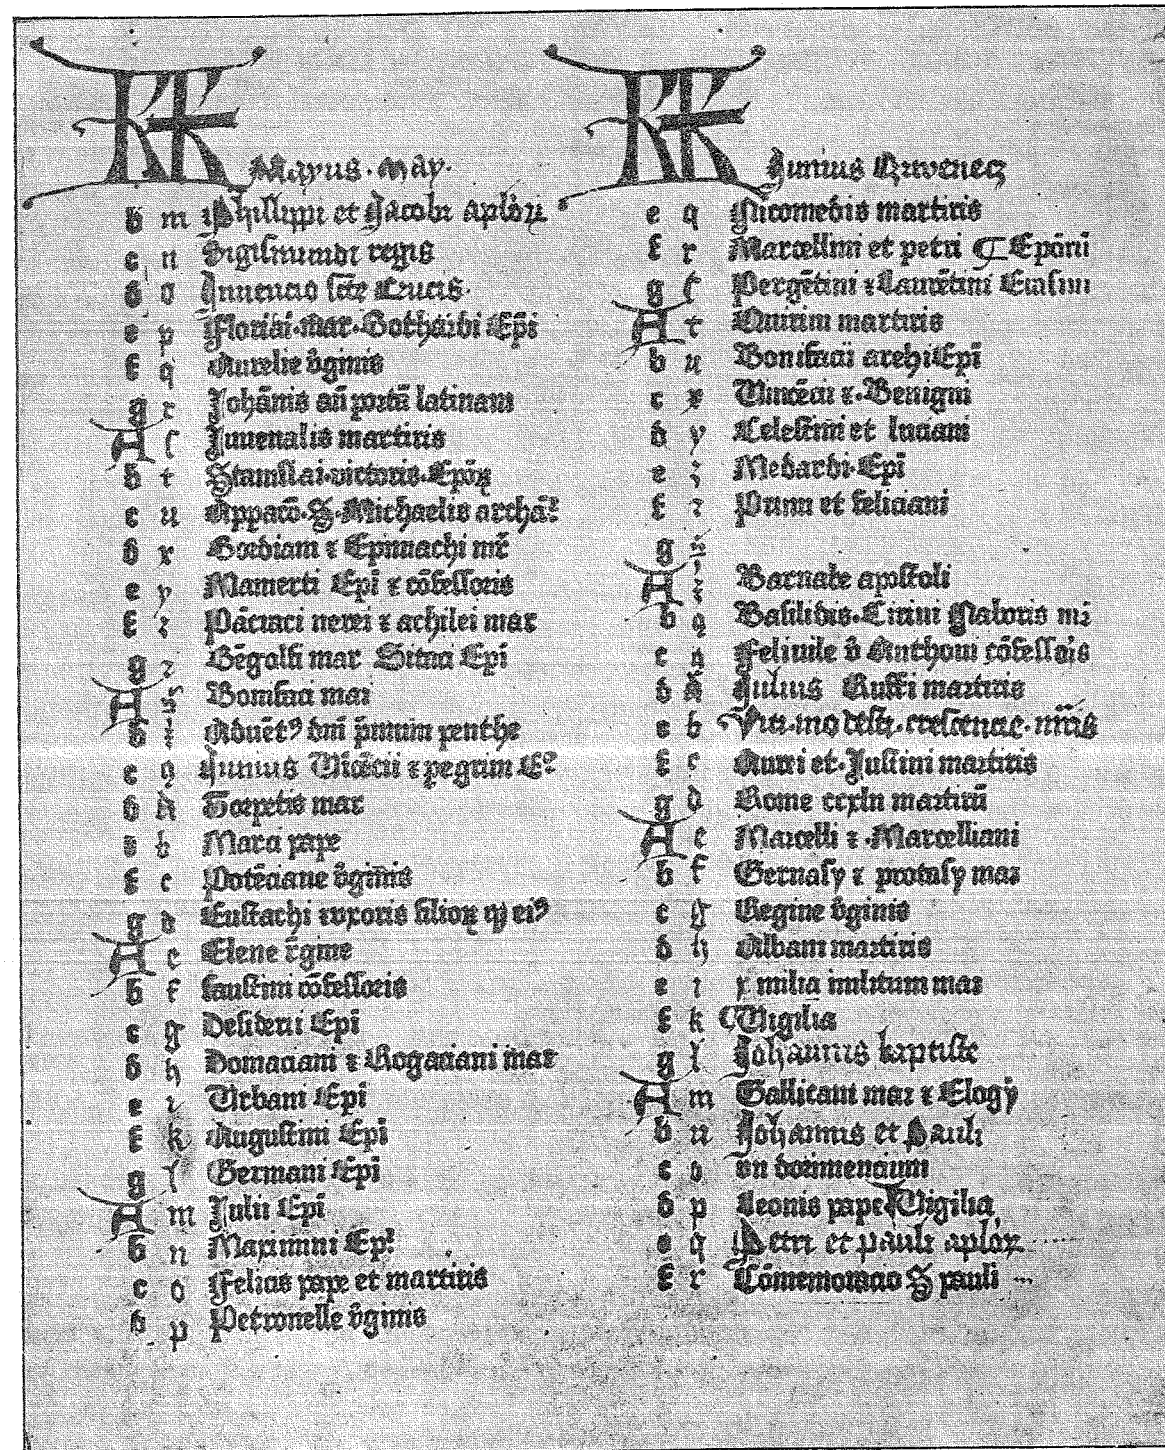 KK Mayus · May ·
b m Phillippi et Jacobi aplōꝝ
c n Sigismundi regis
d o Inuencio sct̄e Crucis ·
e p Floriāi · mar · Gothardi Ep̄i
f q Aurelie v̄ginis
g r Johānis an̄ portā latinam
A ſ Juuenalis martiris
b t Stanislai · victoris · Ep̄oꝝ
c u Appac̄o · S · Michaelis
d x Gordiani ⁊ Epimachi mr̄
e y Mamerti Ep̄i ⁊ cōfessoris
f z Pācraci nerei ⁊ achilei mar
g Ep̄i
A Bonifaci mar
b dn̄i
c Junius
d A mar
e b Marci pape
f c Potēciane v̄ginis
g d Eustachi uxoris filioꝝ
A e Elene
b f faustini cōfessoris
c g Desiderii Ep̄i
d h Domaciani ⁊ Rogaciani mar
e i Urbani Ep̄i
f k Augustini Ep̄i
g l Germani Ep̄i
A m Julii Ep̄i
b n Maximini
c o Felicis pape et martiris
d p Petronelle v̄ginis
KK Junius
e q Nicomedis martiris
f r Marcellini et petri
g ſ Pergētini ⁊ Laurētini
A t Quirini martiris
b u Bonifacii archiEp̄i
c x Vincēcii ⁊ Benigni
d y Celestini et luciani
e z Medardi · Ep̄i
f Primi et feliciani
g
A Barnabe apostoli
b Basilidis · Cirini Naboris
c
d A Julius Ruffi martiris
e b Viti · modesti · crescencie · mr̄is
f c Aurei et · Justini martiris
g d Rome martirū
A e Marcelli ⁊ · Marcelliani
b f Geruasy ⁊ protasy mar
c g Regine v̄ginis
d h Albani martiris
e i x milia militum mar
f k Vigilia
g l Johannis baptiste
A m Gallicani mar ⁊ Elogy
b n Johannis et Pauli
c o dormiencium
d p Leonis pape Vigilia
e q Petri et pauli aplōꝝ
f r Cōmemoracio S pauli